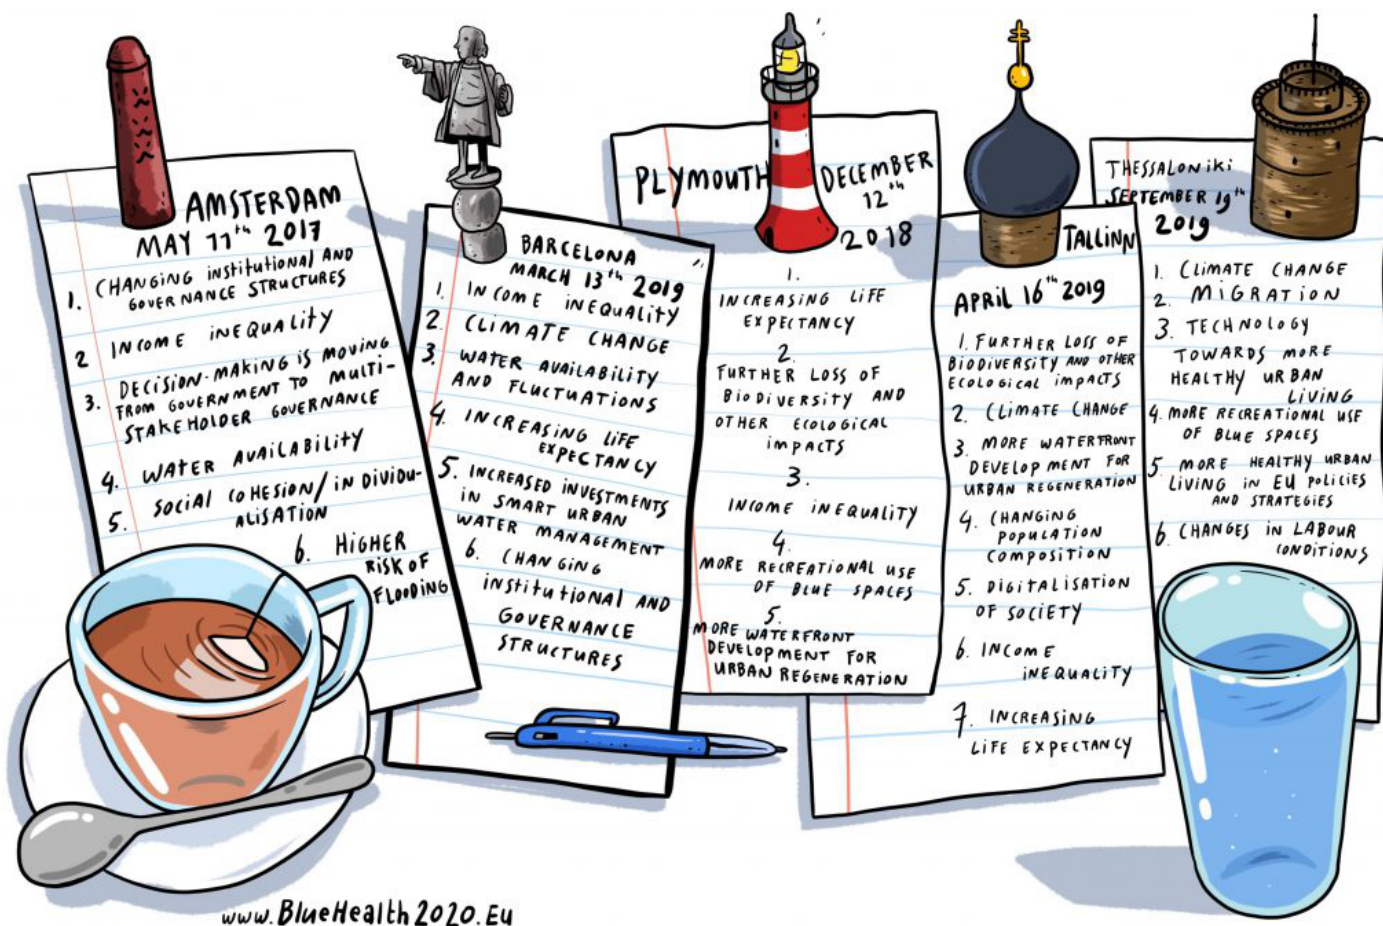 AMSTERDAM
MAY 11th 2017
1. CHANGING institutional AND
GOVERNANCE STRUCTURES
2 INCOME INEQUALITY
3. DECISION-MAKING is MOVING
FROM GOVERNMENT TO MULTI-
STAKEHOLDER GOVERNANCE
4. WATER AVAILABILITY
5. SOCIAL COHESION/INDIVIDU-
ALISATION
6. HIGHER
RISK OF
FLOODING
BARCELONA
MARCH 13th 2019
1. INCOME INEQUALITY
2. CLIMATE CHANGE
3. WATER AVAILABILITY
AND FLUCTUATIONS
4. INCREASING LIFE
EXPECTANCY
5. INCREASED INVESTMENTS
IN SMART URBAN
WATER MANAGEMENT
6. CHANGING
institutional AND
GOVERNANCE
STRUCTURES
PLYMOUTH DECEMBER
12th
2018
1.
INCREASING LIFE
EXPECTANCY
2.
FURTHER LOSS OF
BIODIVERSITY AND
OTHER ECOLOGICAL
IMPACTS
3.
INCOME INEQUALITY
4.
MORE RECREATIONAL USE
OF BLUE SPACES
5.
MORE WATERFRONT
DEVELOPMENT FOR
URBAN REGENERATION
TALLINN
APRIL 16th 2019
1. FURTHER LOSS OF
BIODIVERSITY AND OTHER
ECOLOGICAL IMPACTS
2. CLIMATE CHANGE
3. MORE WATERFRONT
DEVELOPMENT FOR
URBAN REGENERATION
4. CHANGING
POPULATION
COMPOSITION
5. DIGITALISATION
OF SOCIETY
6. INCOME
INEQUALITY
7. INCREASING
LIFE EXPECTANCY
THESSALONIKI
SEPTEMBER 19th
2019
1. CLIMATE CHANGE
2. MIGRATION
3. TECHNOLOGY
TOWARDS MORE
HEALTHY URBAN
LIVING
4. MORE RECREATIONAL USE
OF BLUE SPACES
5. MORE HEALTHY URBAN
LIVING IN EU POLICIES
AND STRATEGIES
6. CHANGES IN LABOUR
CONDITIONS
www.BlueHealth2020.Eu